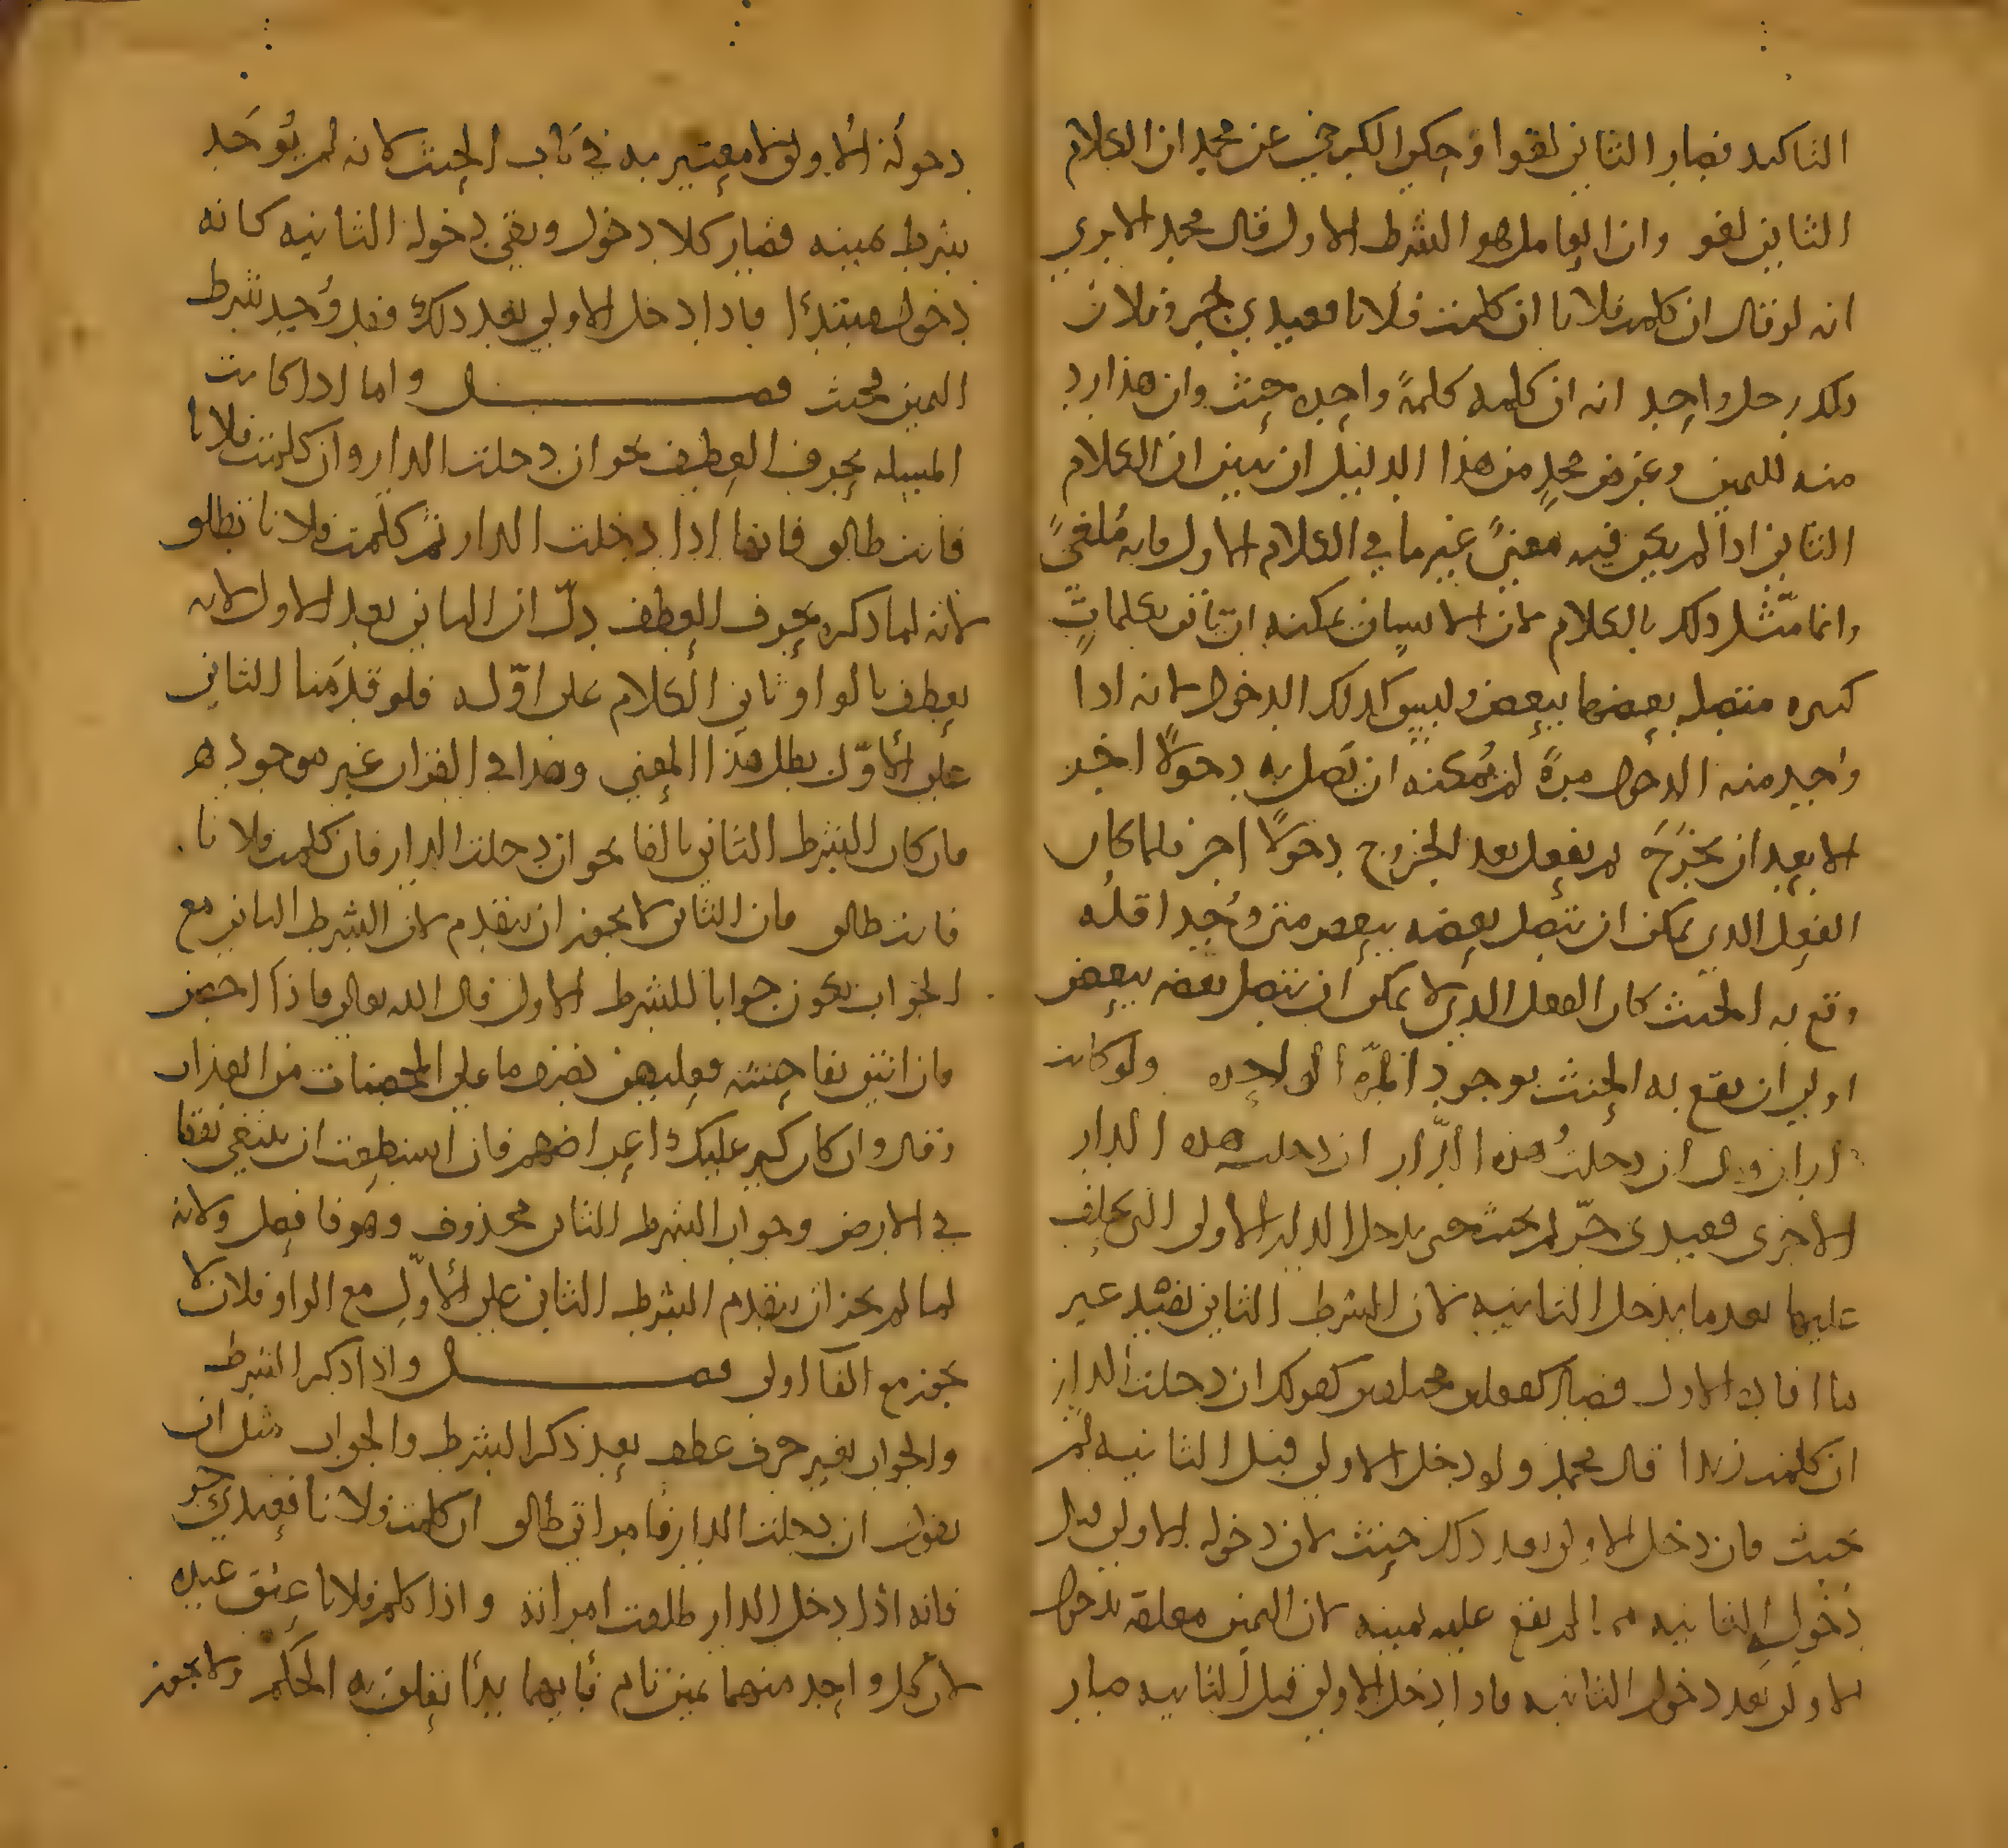 التاكيد فصار الثاني لغوا وحكى الكرخي عن محمد ان الكلام
الثاني لغو وان العامل هو الشرط الاول قال محمد الا ترى
انه لو قال ان كلمت فلانا ان كلمت فلانا فعبدي حر وفلان
ذلك رجل واحد انه ان كلمه كلمةً واحده حنث وان هذا رد
منه لليمين وغرض محمدٍ من هذا الدليل ان يبين ان الكلام
الثاني اذا لم يكن فيه معنىً غير ما في الكلام الاول فانه مُلغىً
وانما مثّل ذلك بالكلام لان الانسان يمكنه ان يأتي بكلماتٍ
كثيره متصله بعضها ببعض وليس كذلك الدخول لانه اذا
واحد منه الدخول مرةً لم يُمكنه ان يَصل به دخولًا اخر
الا بعد ان يخرَجَ ثم يفعل بعد الخروج دخولًا اخر فلما كان
الفعل الذي يمكن ان يتصل بعضه ببعض متى وُجد اقله
وقع به الحنث كان الفعل الذي لا يمكن ان يتصل بعضه ببعض
اولى ان يقع به الحنث بوجود المرّه الواحده ولو كانت
داران وقال ان دخلتُ هذه الدّار ان دخلت هذه الدار
الاخرى فعبدي حرّ لم يحنث حتى يدخل الدار الاولى التي يحلف
عليها بعد ما يدخل الثانيه لان الشرط الثاني يفيد غير
ما افاده الاول فصار كفعلين مختلفين كقولك ان دخلت الدار
ان كلمت زيدا قال محمد ولو دخل الاولى قبل الثانيه لم
يحنث فان دخل الاولى بعد ذلك حنث لان دخوله الاولى قبل
دُخول الثانيه لم يقع عليه يمينه لان اليمين معلقه بدخول
الاولى بَعد دخول الثانيه فاذا دخل الاولى قبل الثانيه صار
دخوله الاولى لا معتبر به في باب الحنث كانه لم يُوجَد
بشرط يمينه فصار كلا دخول وبقي دخوله الثانيه كانه
دخول مبتدأ فاذا دخل الاولى بعد ذلك فقد وُجد شرط
اليمين فحنث فصل واما اذا كانت
المسله بحرف العطف نحو ان دخلت الدار وان كلمت فلانا
فانت طالق فانها اذا دخلت الدار ثم كلّمت فلانا تطلق
لانه لما ذكره بحرف العطف دلّ ان الثاني بعد الاول لانه
يعطف بالواو ثاني الكلام على اوّله فلو قدّمنا الثاني
على الأوّل بطل هذا المعنى وهذا في القران غير موجود ه
فان كان الشرط الثاني بالفا نحو ان دخلت الدار فان كلمت فلانا
فانت طالق فان الثاني لا يجوز ان يتقدم لان الشرط الثاني مع
الجواب يكون جوابا للشرط الاول قال الله تعالى فاذا احصن
فان اتين بفاحشه فعليهن نصف ما على المحصنات من العذاب
وقال وان كان كبر عليك اعراضهم فان استطعت ان تبتغي نفقا
في الارض وجواب الشرط الثاني محذوف وهو فافعل ولانه
لما لم يجز ان يتقدم الشرط الثاني على الأوّل مع الواو فلان لا
يجوز مع الفآ اولى فصل واذا ذكر الشرط
والجواب بغير حرف عطف بعد ذكر الشرط والجواب مثل ان
يقول ان دخلت الدار فامراتي طالق ان كلمت فلانا فعبدي حر
فانه اذا دخل الدار طلقت امراته واذا كلم فلانا عتق عبده
لأن كل واحد منهما يمين تام فبأيهما بدأ تعلق به الحكم ولا يجوز